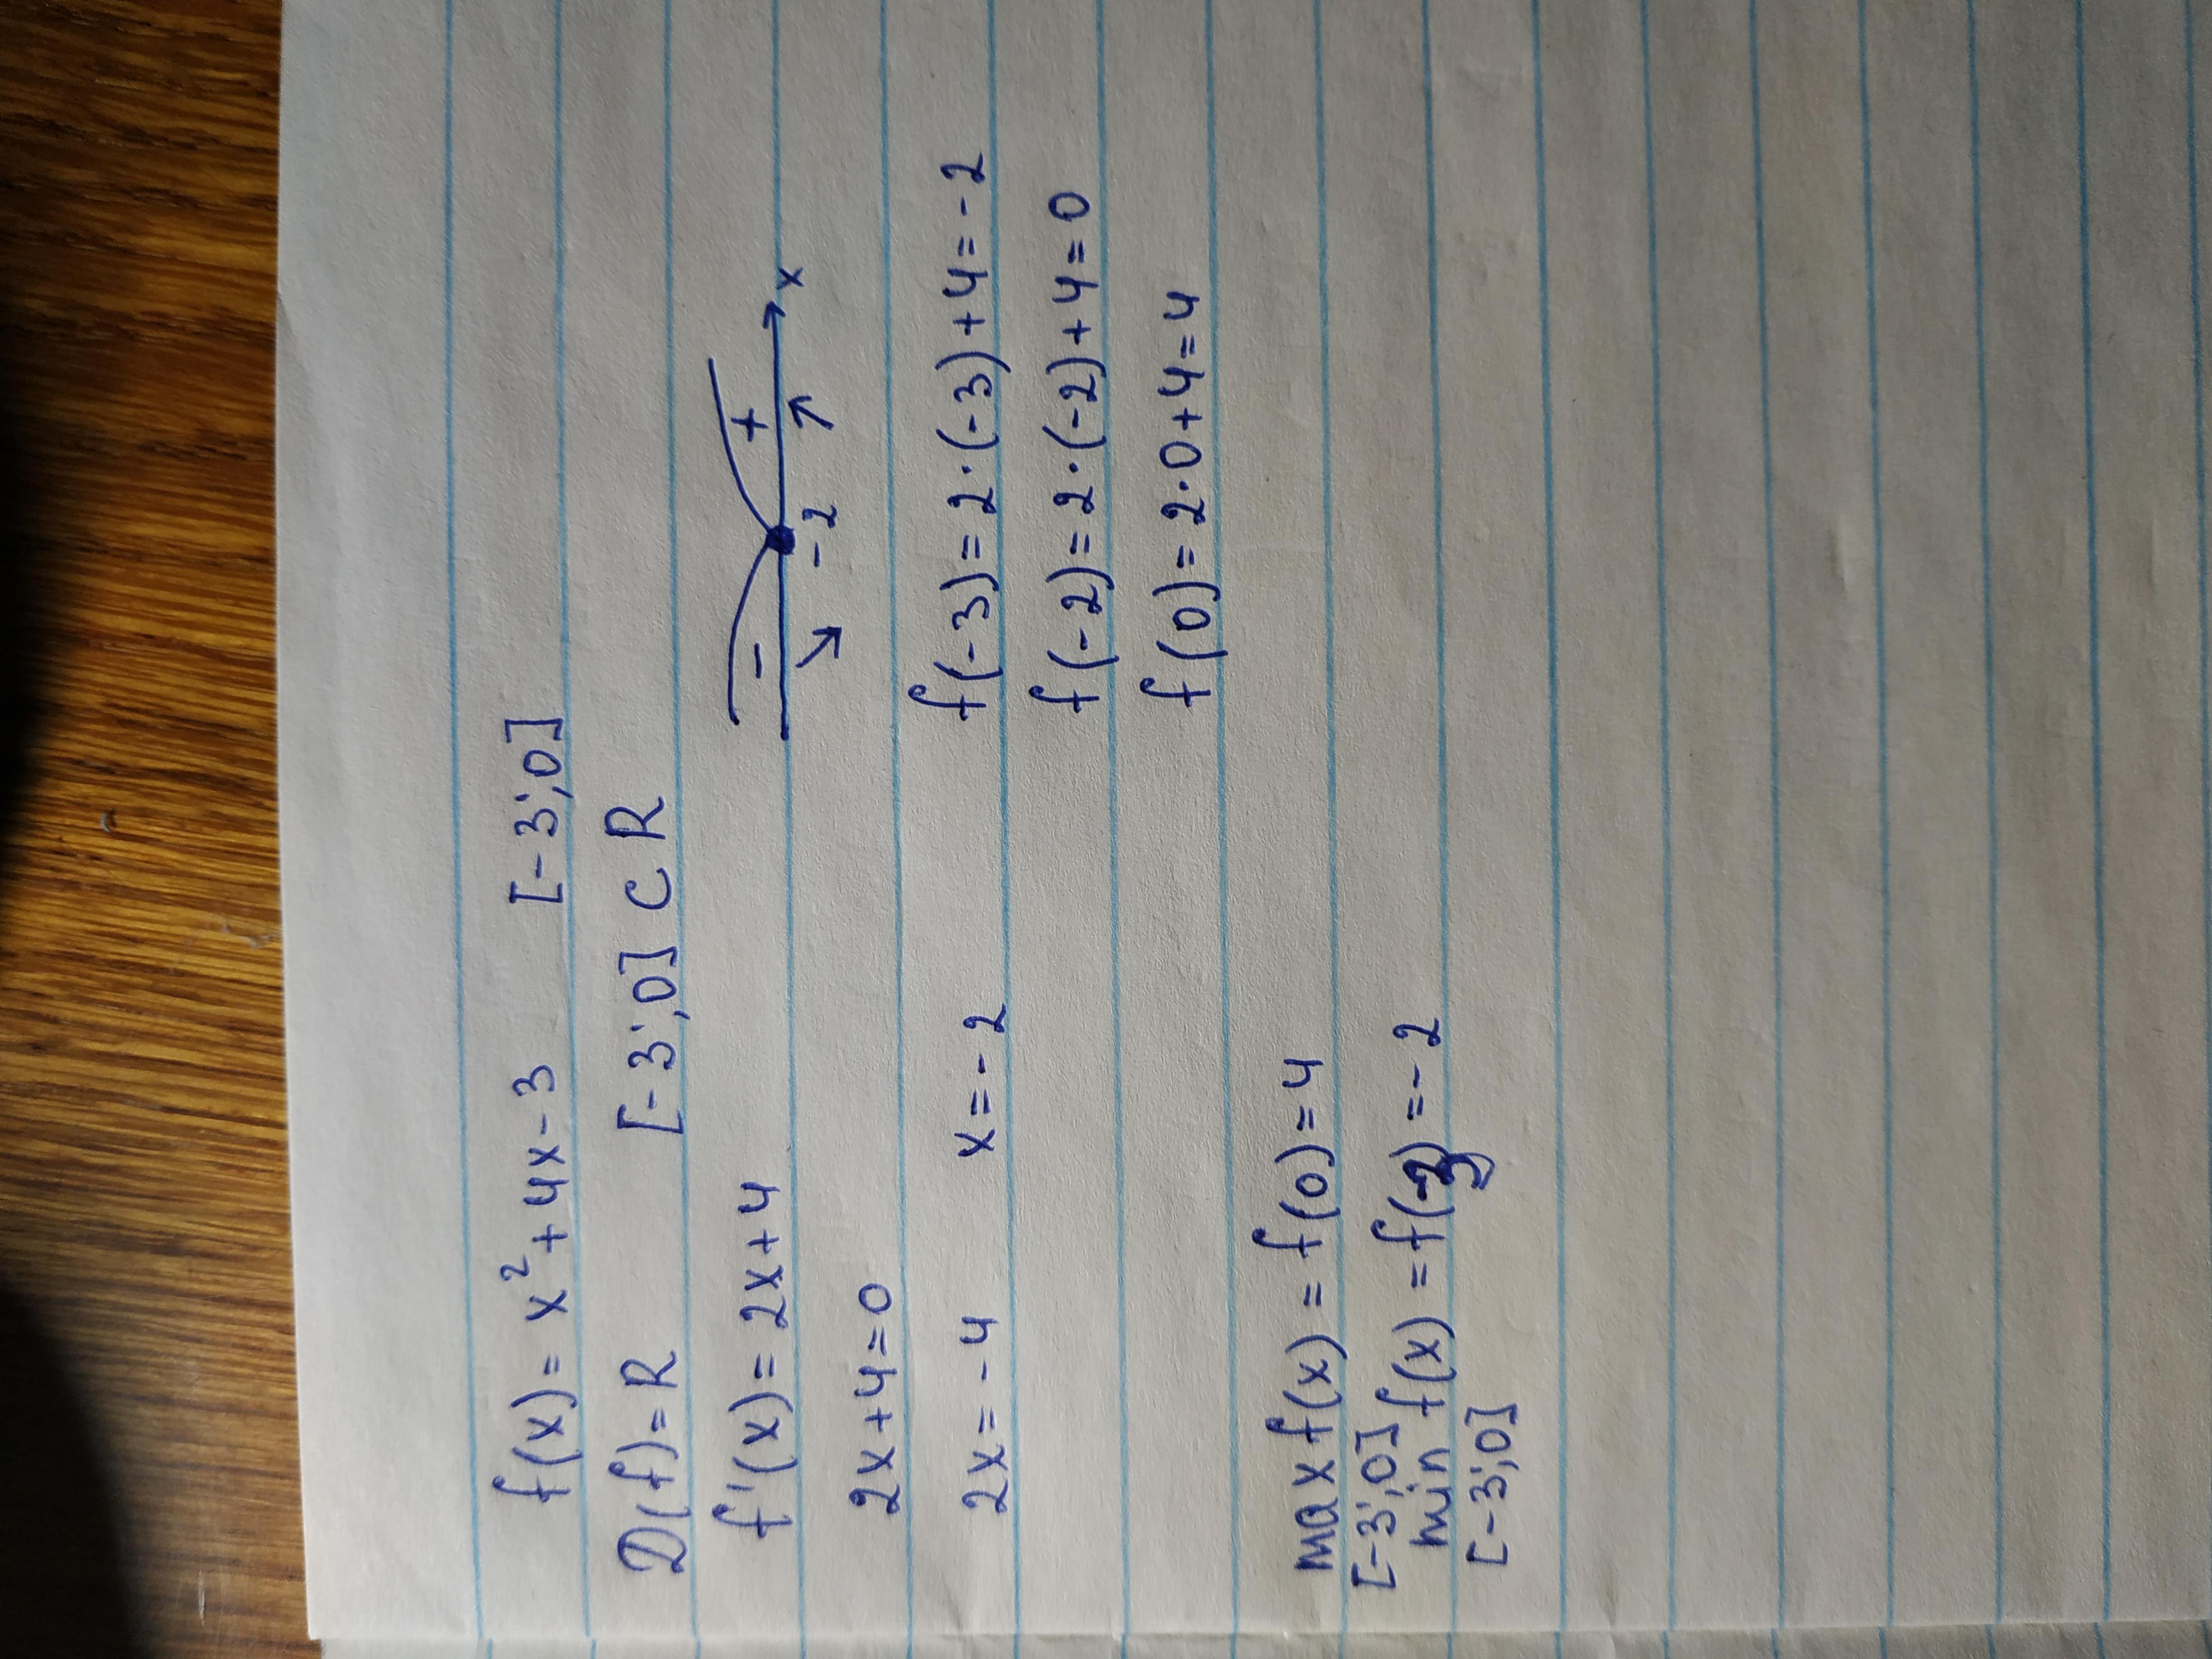 f(x) = x² + 4x - 3 [-3; 0]
D(f) = R [-3; 0] ⊂ R
f'(x) = 2x + 4
- + x
-2
2x + 4 = 0
2x = -4 x = -2
f(-3) = 2·(-3) + 4 = -2
f(-2) = 2·(-2) + 4 = 0
f(0) = 2·0 + 4 = 4
max f(x) = f(0) = 4
[-3; 0]
min f(x) = f(-3) = -2
[-3; 0]